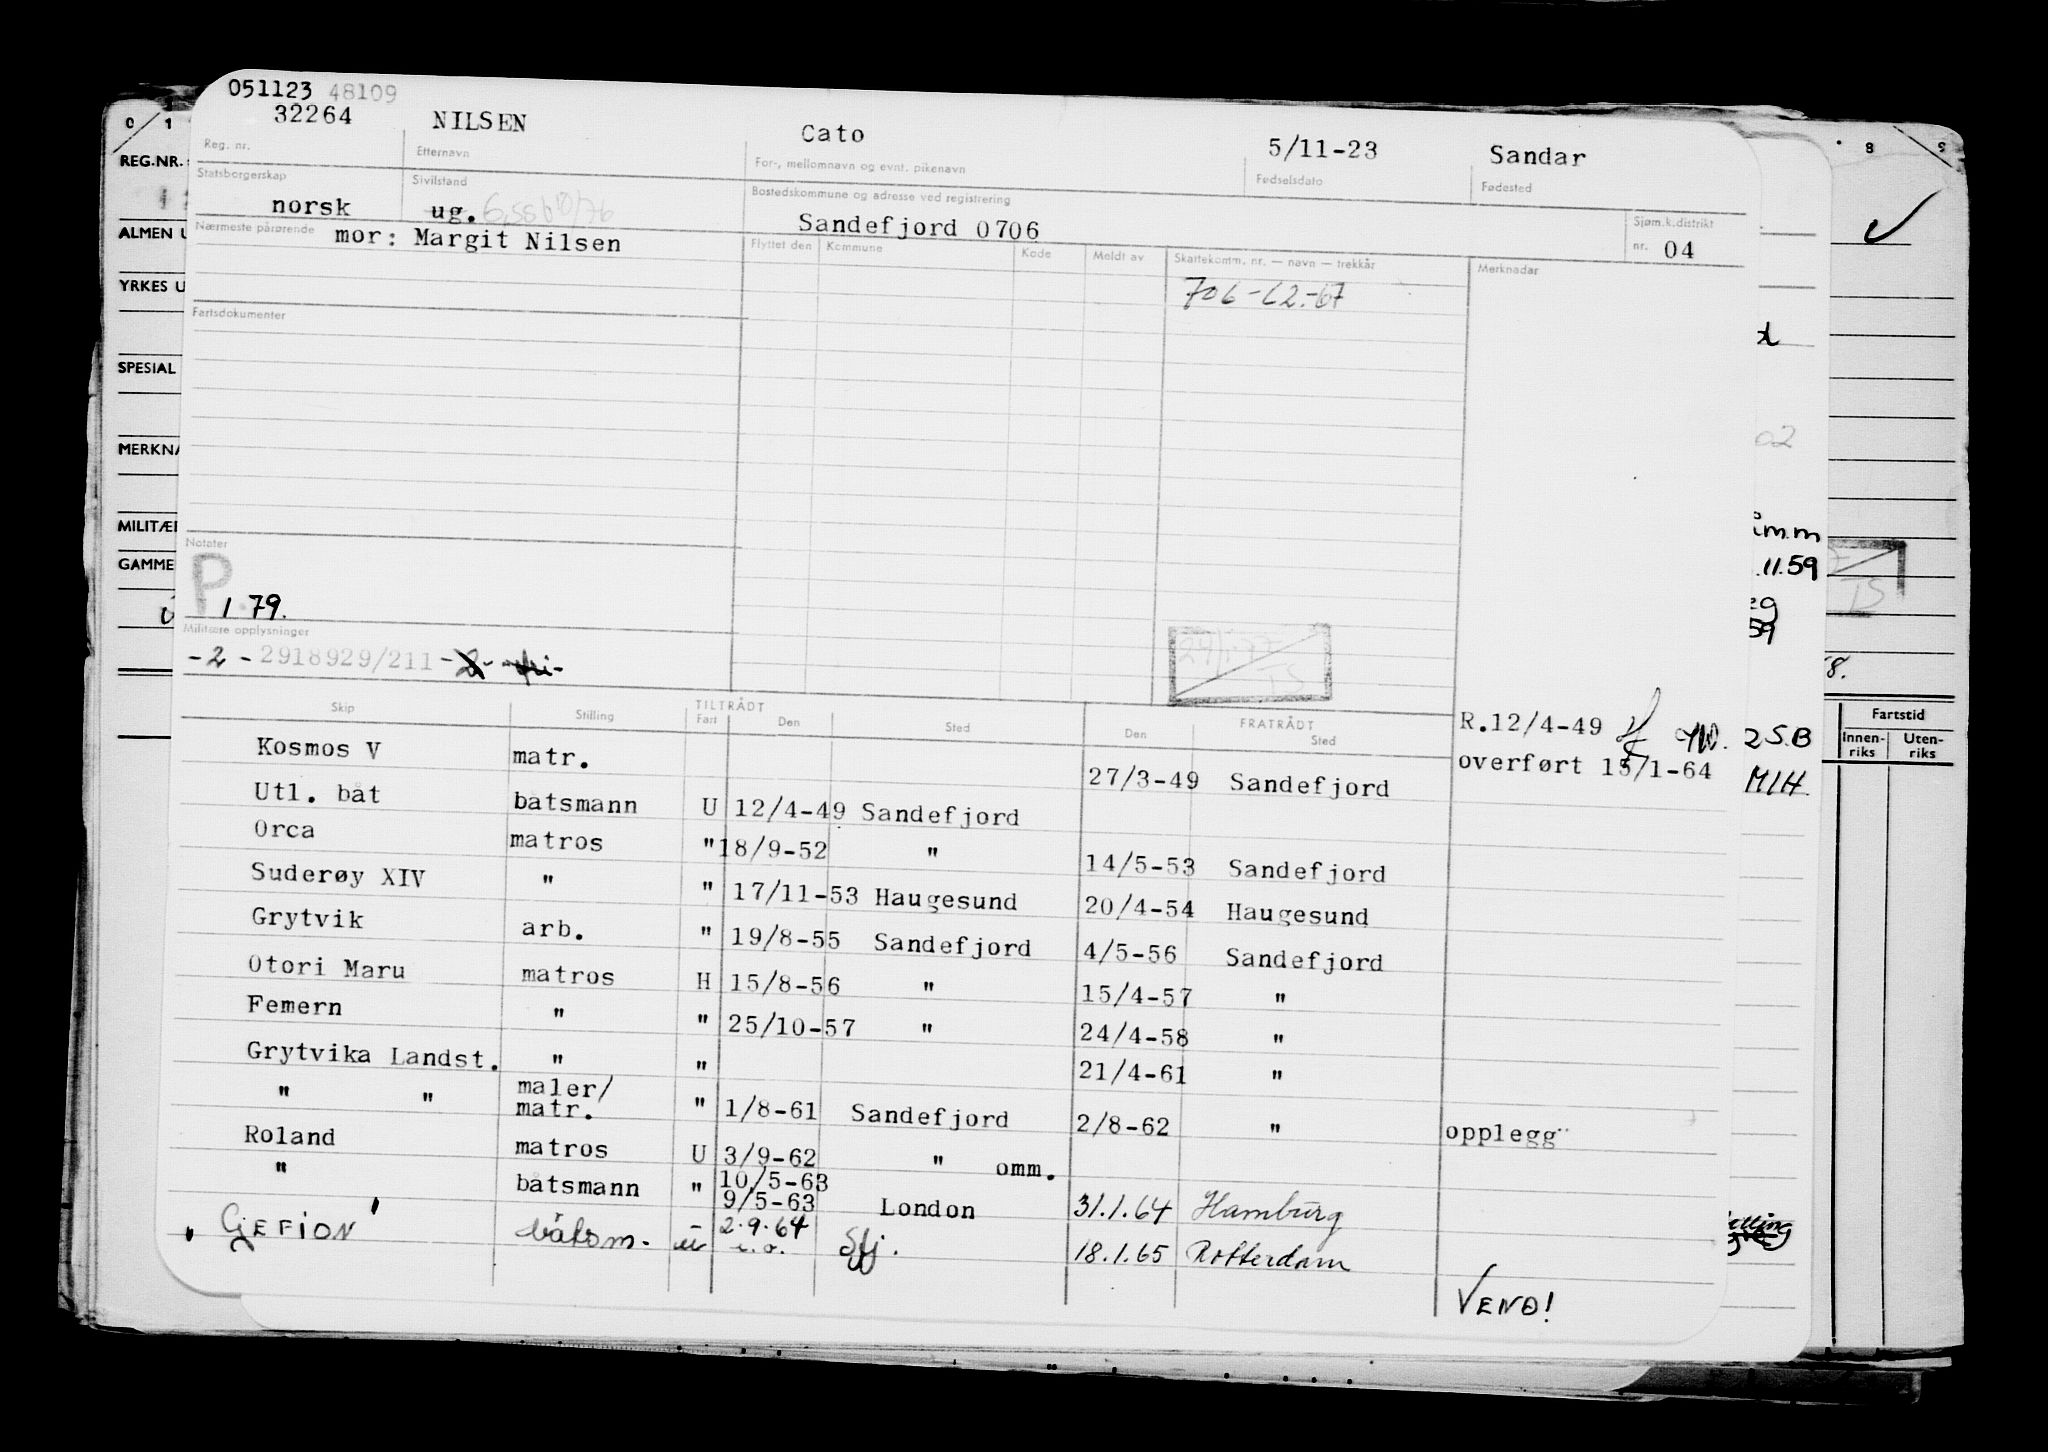 051123 48109
32264 NILSEN Cato 5/11-23 Sandar
Reg. nr. Etternavn For-, mellomnavn og evnt. pikenavn Fødselsdato Fødested
Statsborgerskap Sivilstand Bostedskommune og adresse ved registrering
norsk ug. Sandefjord 0706 Sjøm.k.distrikt nr. 04
Nærmeste pårørende mor: Margit Nilsen Flyttet den Kommune Kode Meldt av Skattekomm. nr. — navn — trekkår Merknadar
706-62.-67
Fartsdokumenter
Notater
P
1 79.
Militære opplysninger
-2-2918929/211-
24/1-77
TS
Skip Stilling TILTRÅDT Fart Den Sted FRATRÅDT Den Sted
R.12/4-49
overført 15/1-64
Kosmos V matr. 27/3-49 Sandefjord
Utl. båt båtsmann U 12/4-49 Sandefjord
Orca matros " 18/9-52 " 14/5-53 Sandefjord
Suderøy XIV " " 17/11-53 Haugesund 20/4-54 Haugesund
Grytvik arb. " 19/8-55 Sandefjord 4/5-56 Sandefjord
Otori Maru matros H 15/8-56 " 15/4-57 "
Femern " " 25/10-57 " 24/4-58 "
Grytvika Landst. " " 21/4-61 "
" " maler/ matr. " 1/8-61 Sandefjord 2/8-62 " opplegg
Roland matros U 3/9-62 " omm.
" båtsmann " 10/5-63
9/5-63 London 31.1.64 Hamburg
" GEFION " båtsm. - u 2.9.64 Sfj. 18.1.65 Rotterdam
VEND!
0 1
REG.NR.
ALMEN U
YRKES U
SPESIAL
MERKNA
MILITÆR
GAMME
8 9
02
.11.59
59
8.
TS
2 S.B
MIH.
Fartstid
Innen-riks Uten-riks